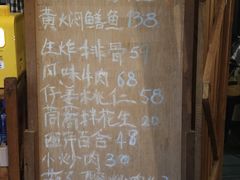 黄焖鳝鱼 138
生炸排骨 59
风味牛肉 68
仔姜桃仁 58
茼蒿拌花生 20
西芹百合 48
小炒肉 30